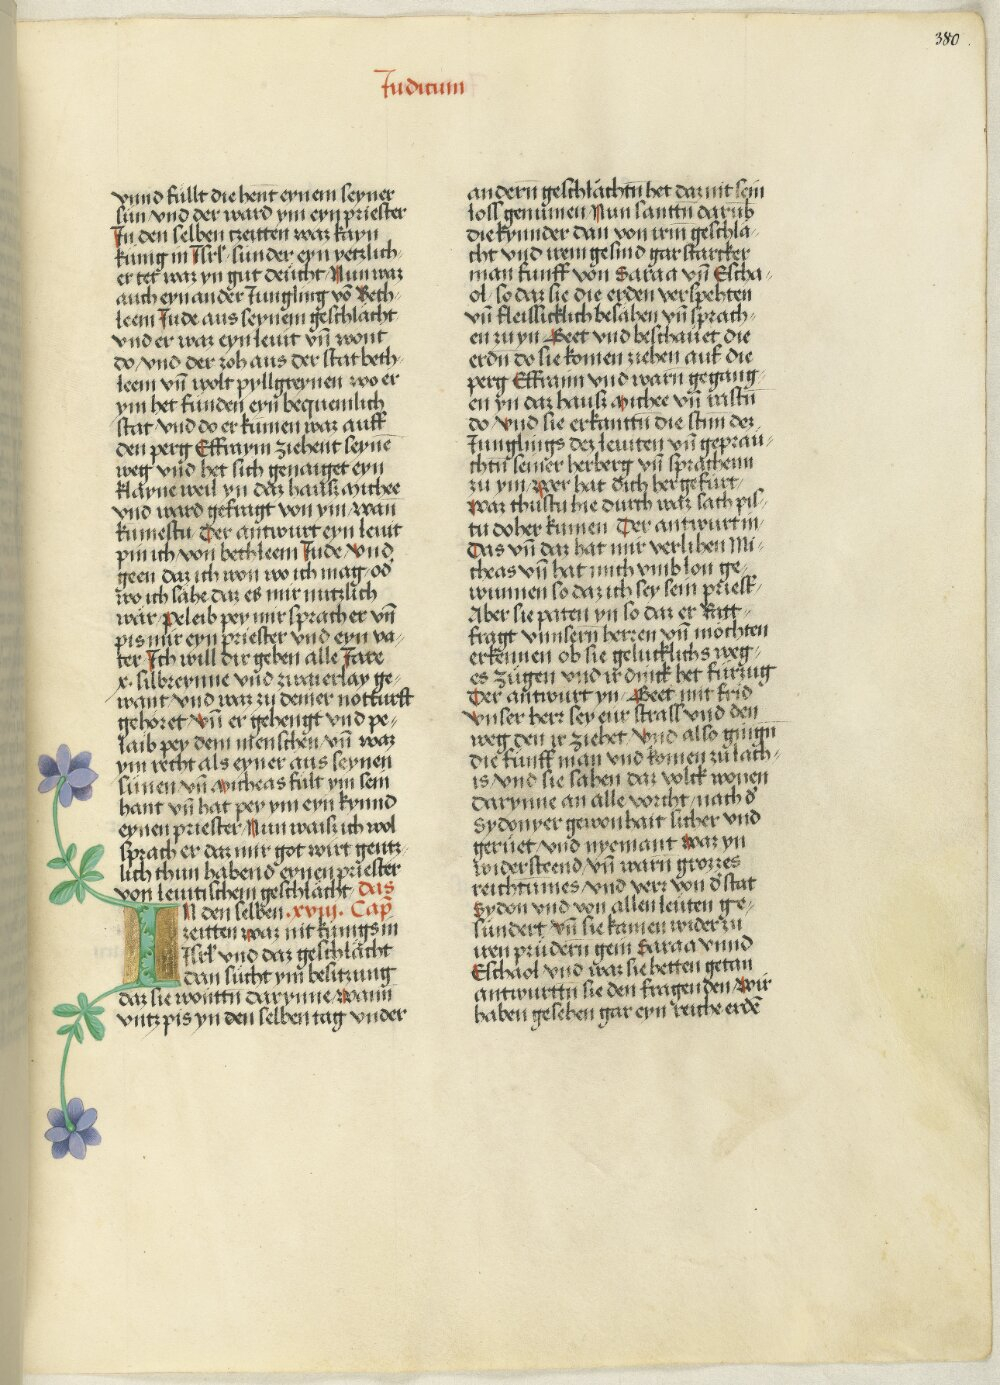 380
Judicum
vnnd füllt die hent eynem seyner
sün vnd der ward ym eyn priester
In den selben tzeitten waz kayn
künig in Isrl. sunder eyn yetzlich-
er tet waz yn gut deücht. Nun waz
auch eyn ander Jungling vō Beth-
leem Jude aus seynem geschlächt
vnd er waz eyn leuit vn̄ wont
do/vnd der zoh aus der stat beth-
leem vn̄ wolt pyllgreynen wo er
ym het funden eyn bequemlich
stat/vnd do er kumen waz auff
den perg Effraym ziehent seyne
weg vnd het sich genaiget eyn
klayne weil yn daz hausz Mithee
vnd ward gefragt von ym/wan
kumestu Der antwurt eyn leuit
pin ich von bethleem Jude/Vnd
geen daz ich won wo ich mag/od̄
wo ich sähe daz es mir nutzlich
wär/Peleib pey mir sprach er vn̄
pis mir eyn priester vnd eyn va-
ter Ich will dir geben alle Jare
x. silbreynne vnd zwaierlay ge-
want/vnd waz zu deiner notturft
gehöret Vn̄ er gehengt vnd pe-
laib pey dem menschen/vn̄ waz
ym recht als eyner aus seynen
sünen/vn̄ Mitheas fült ym sein
hant vn̄ hat pey ym eyn kynnd
eynen priester/Nun waisz ich wol
sprach er daz mir got wirt gentz-
lich thun habend eynen priester
von leuitischem geschlächt. das
IN den selben .xviij. Cap̄
zeitten waz nit künigs in
Isrl vnd daz geschlächt
dan sücht ym besitzung
daz sie wonttn darynne/Wann
vntz pis yn den selben tag vnder
andern geschlächtn het daz nit sein
loss genumen Nun santtn darüb
die kynnder dan von irm geschlä-
cht vnd irem gesind gar starcker
man funff von Saraa vn̄ Escha-
ol/so daz sie die erden verspehten
vn̄ fleissicklich besahen vn̄ sprach-
en zu yn/Geet vnd beschauet die
erdn do sie komen ziehen auf die
perg Effraim vnd warn gegang-
en yn daz hausz Mithee vn̄ rastn
do/Vnd sie erkantn die stim dez
Junglings dez leuiten vn̄ geprau-
chtn seiner herberg vn̄ sprachenn
zu ym/Wer hat dich her gefürt/
Waz thustu hie durch waz sach pis-
tu doher kumen Der antwurt in
Das vn̄ daz hat mir verlihen Mi-
theas vn̄ hat mich vmb lon ge-
wunnen so daz ich sey sein priest̄
Aber sie paten yn so daz er Ratt-
fragt vnnsern herren vn̄ möchten
erkennen ob sie gelücklichs weg-
es zügen vnd ir dinck het fürzug
Der antwurt yn/Geet mit frid
Vnser herr sey eür strass vnd den
weg den ir ziehet/Vnd also gingn
die funff man vnd komen zu lach-
is/vnd sie sahen daz volck wonen
darynne an alle vorcht/nach d̄
Sydonyer gewonhait sicher vnd
gerüet/vnd nyemant waz yn
widersteend/vn̄ warn grozzes
reichtumes/vnd verr von d̄ stat
Sydon vnd von allen leüten ge-
sündert vn̄ sie kamen wider zu
iren prüdern gein Saraa vnnd
Eschaol/vnd waz sie hetten getan
antwurttn sie den fragenden/Wir
haben gesehen gar eyn reiche erdē